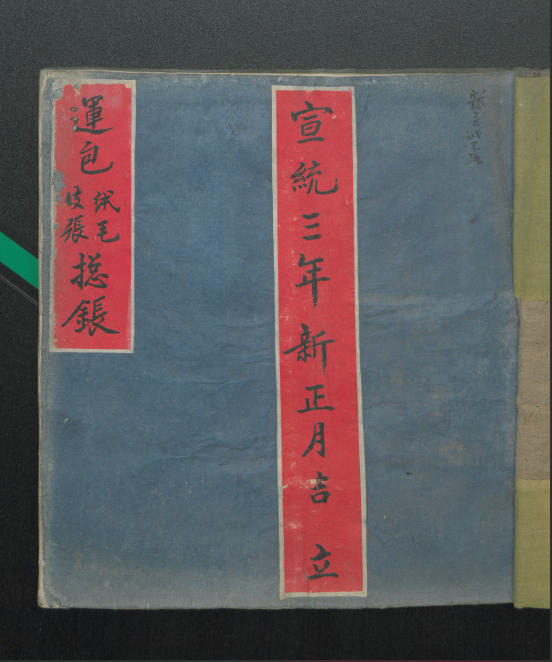 宣統三年新正月吉立
運包
絨毛
皮張
摠賬